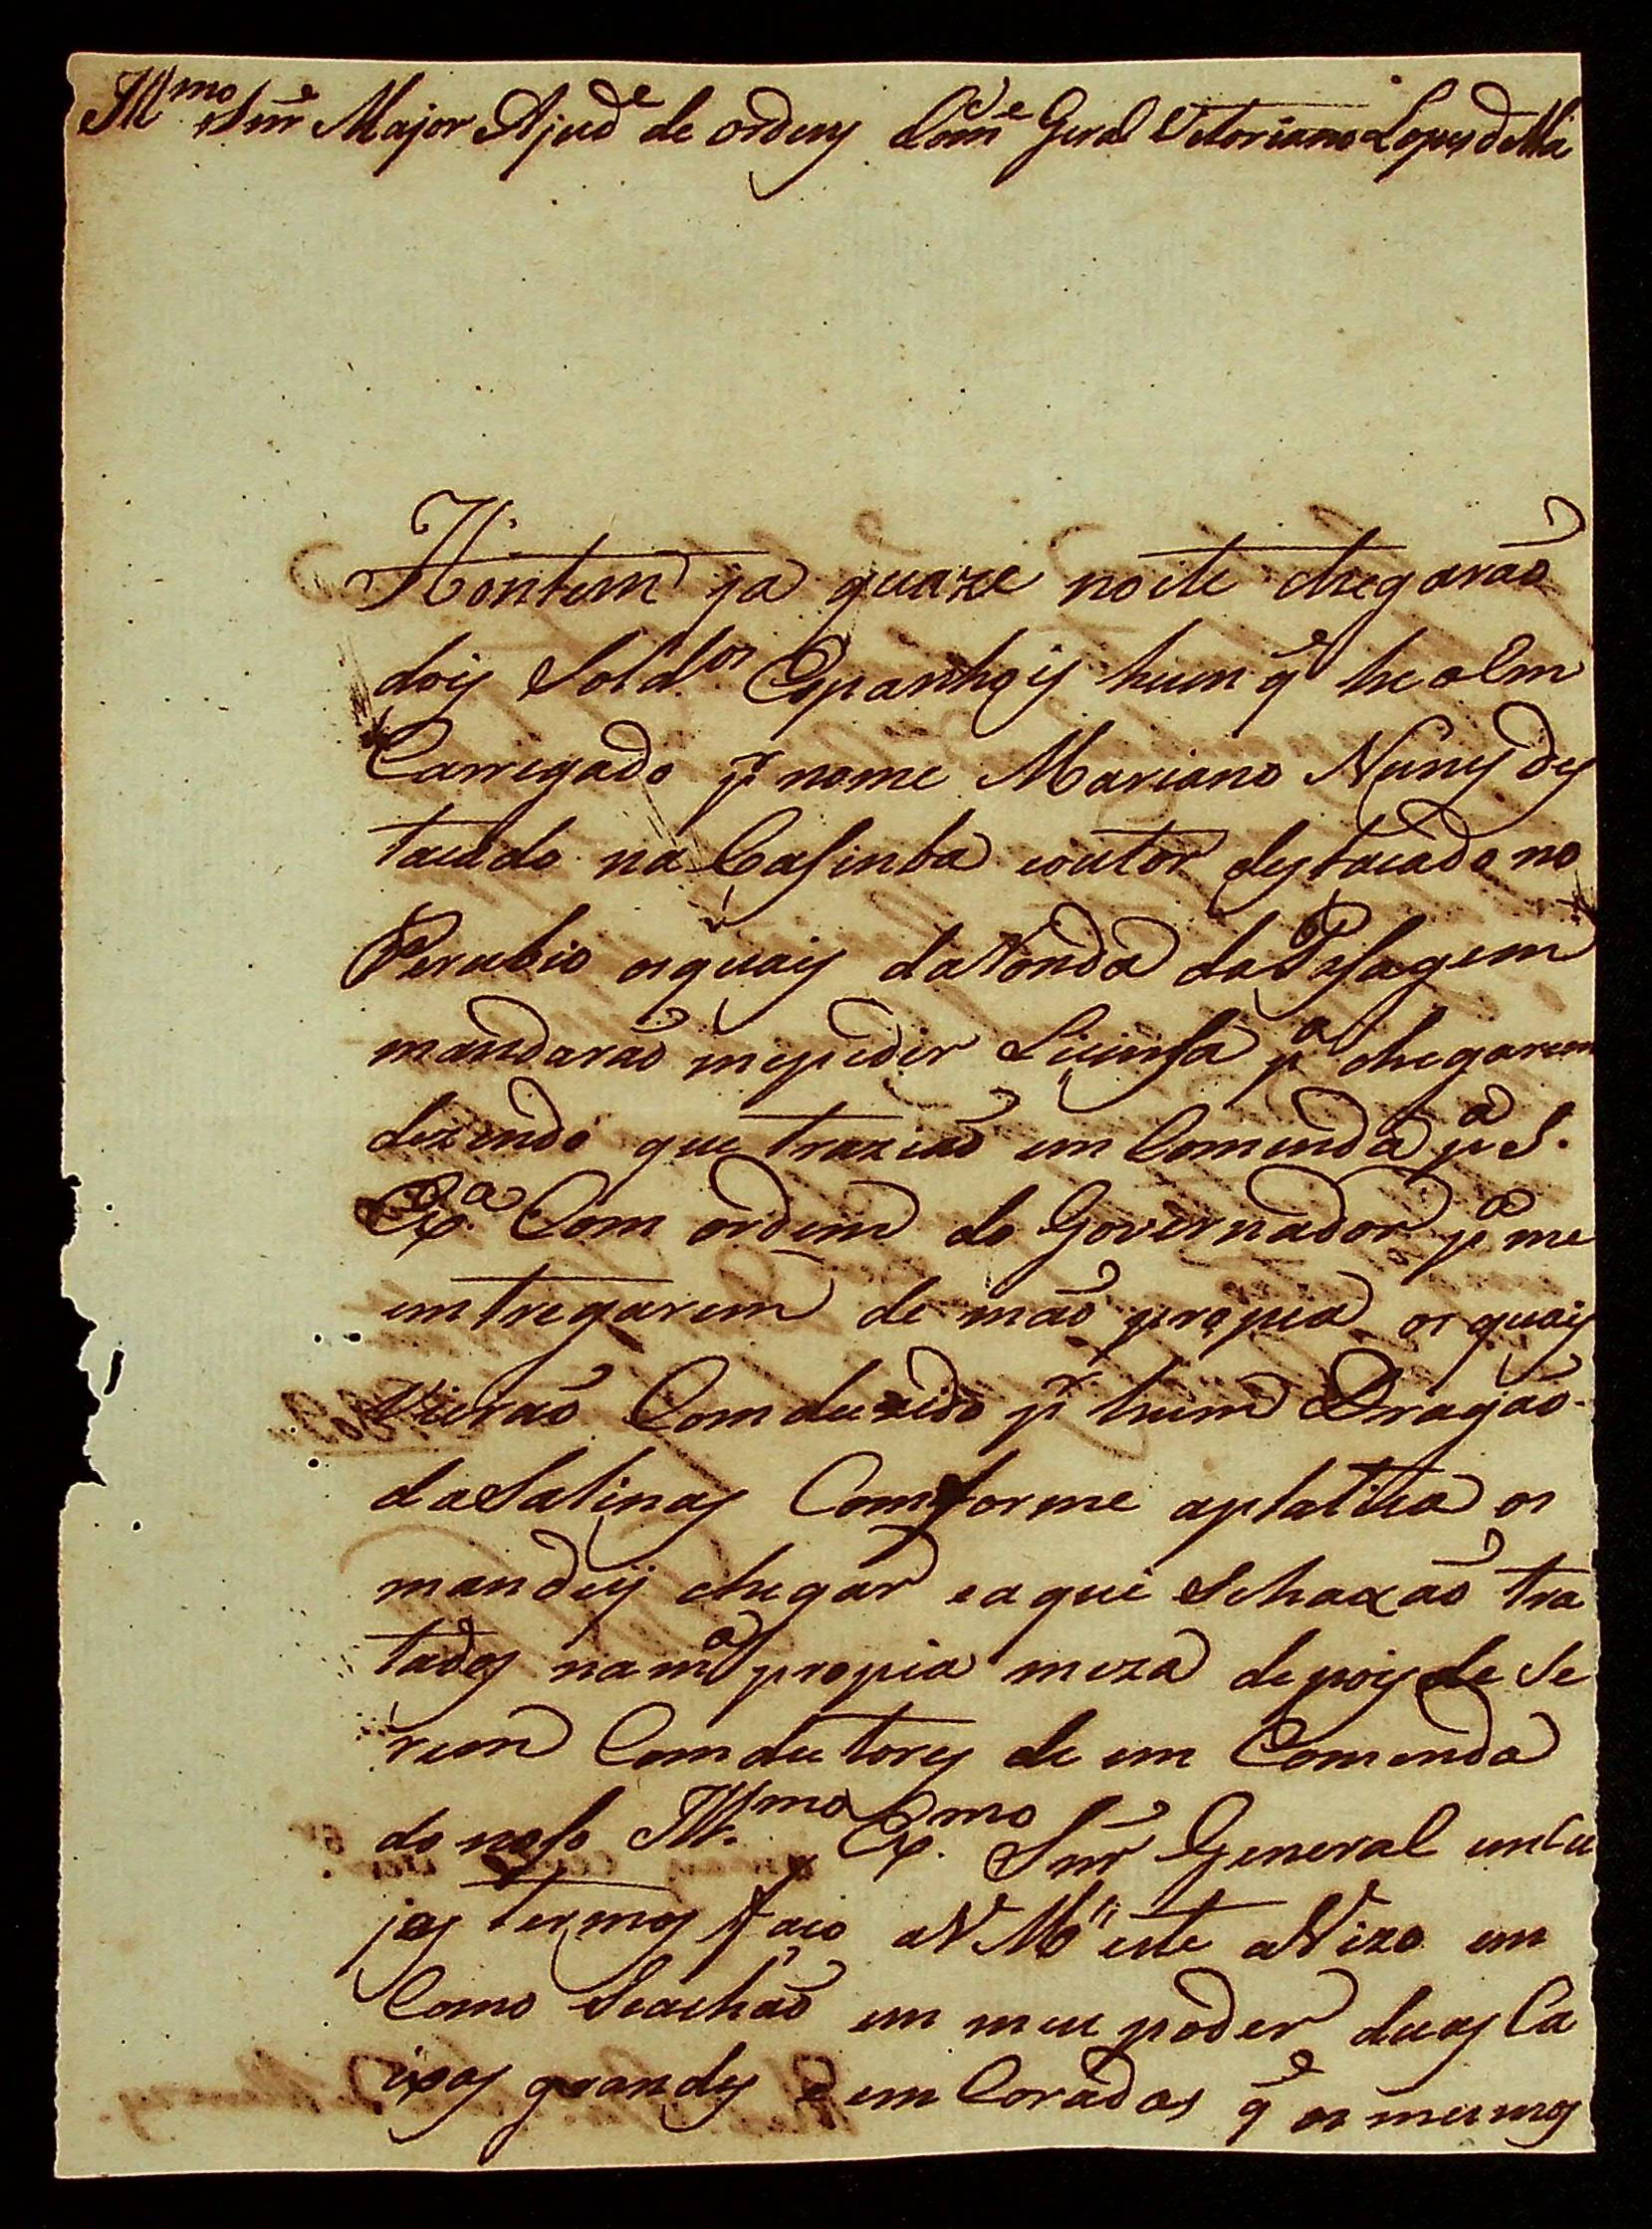 Illmo Snr̃ Major Ajude de ordens Comde Geral Vetoriano Lopes d Ma
Hontem ja quaze noite chegarão
dois Sold.os Espanhois hum q̃ he o Em
Carregado pr nome Mariano Nunes des
tacado na Casinba eoutor destacado no
Perubio osquais da Ronda da Pasagem
mandarão mepedir Licinsa pa chegarem
dezendo que trazião em Comenda pa S.
Exa Com ordem do Governador pa me
emtregarem de mão propia os quais
vierão Comduzido pr hum Dragão
daSalinas Comforme aplatica os
mandeij chegar eaque Sehaxão tra
tados nama propia meza depois de Se
rem Comdutores de em Comenda
do noso Ill.mo e Ex.mo Snr̃ General emCu
jos termos faco aVMce este aVizo em
Como Seachão em meu poder duas Ca
ixas grandes e em Coradas q̃ os mesmos